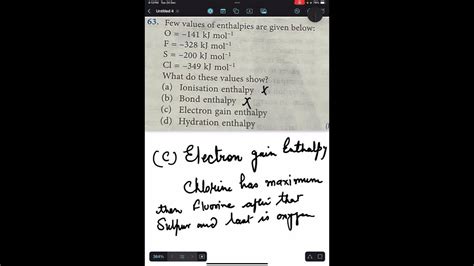 Untitled 4
63. Few values of enthalpies are given below:
O = –141 kJ mol⁻¹
F = –328 kJ mol⁻¹
S = –200 kJ mol⁻¹
Cl = –349 kJ mol⁻¹
What do these values show?
(a) Ionisation enthalpy x
(b) Bond enthalpy x
(c) Electron gain enthalpy
(d) Hydration enthalpy
(C) Electron gain Enthalpy
Chlorine has maximum
then Fluorine after that
Sulpur and last is oxygen